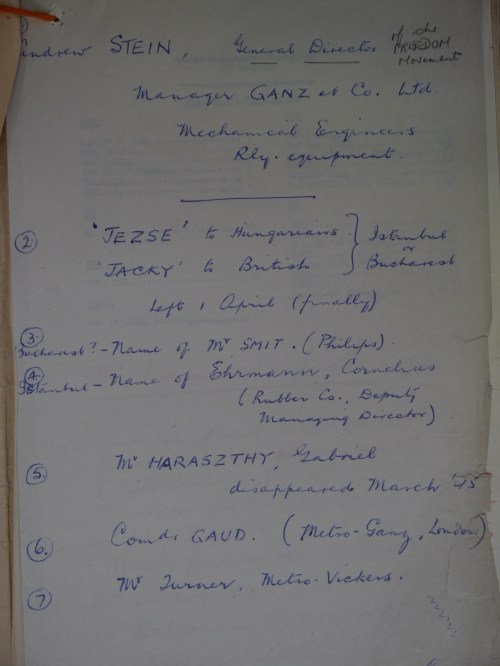 Andrew STEIN, General Director of the FREEDOM Movement
Manager GANZ et Co. Ltd.
Mechanical Engineers
Rly. equipment.
2. 'JEZSE' to Hungarians } Istanbul
'JACKY' to British } or Bucharest
Left 1 April (finally)
3.
Bucharest? - Name of Mr SMIT. (Philips).
4.
Istanbul - Name of Ehrmann, Cornelius
(Rubber Co., Deputy
Managing Director)
5. Mr HARASZTHY, Gabriel
disappeared March '45
6. Comdr GAUD. (Metro-Ganz, London)
7 Mr Turner, Metro-Vickers.